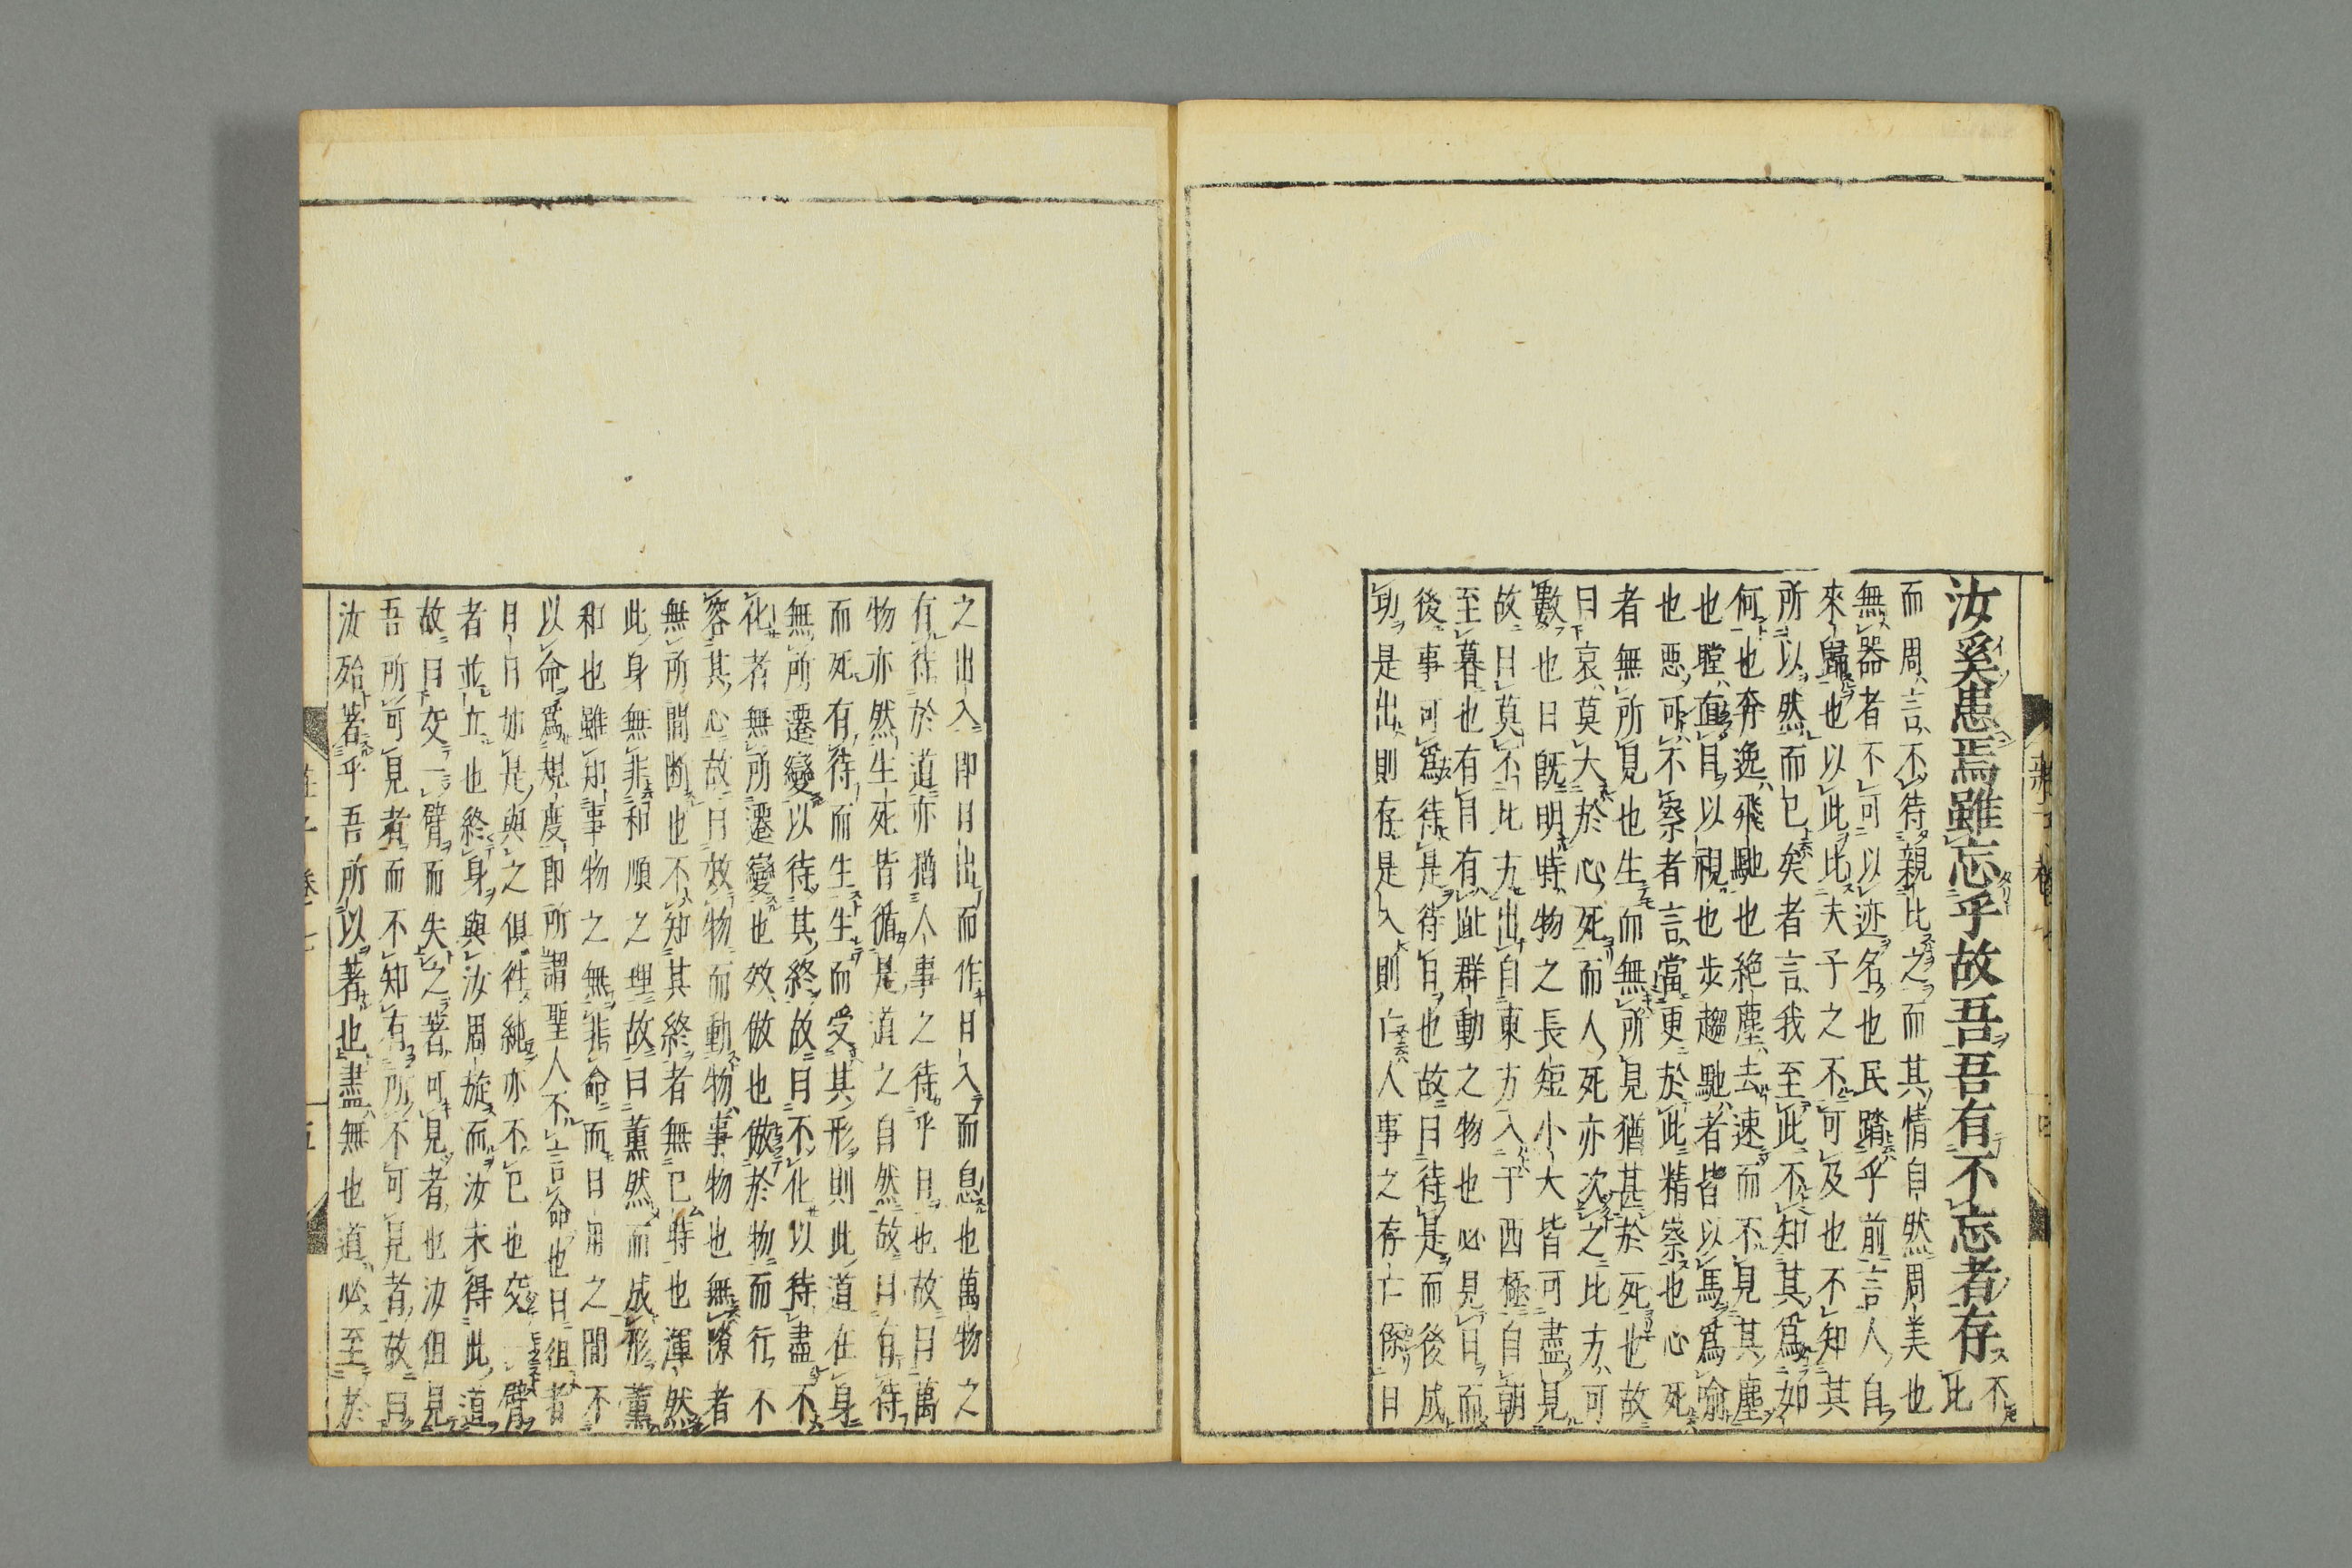 汝奚患焉雖忘乎故吾吾有不忘者存不比
而周言不待親比之而其情自然周美也
無器者不可以迹名也民蹈乎前言人自
來歸也以此比夫子之不可及也不知其
所以然而已矣者言我至此不知其爲如
何也奔逸飛馳也絶塵去速而不見其塵
也瞠直目以視也步趨馳者皆以馬爲喻
也惡可不察者言當更於此精察也心死
者無所見也生而無所見猶甚於死也故
曰哀莫大於心死而人死亦次之比方可
數也日旣明時物之長短小大皆可盡見
故曰莫不比方出自東方入于西極自朝
至暮也有目有趾群動之物也必見日而
後事可爲待是待日也故曰待是而後成
功是出則存是入則亡人事之存亡係日
之出入即日出而作日入而息也萬物之
有待於道亦猶人事之待乎日也故曰萬
物亦然生死皆循是道之自然故曰有待
而死有待而生生而受其形則此道在身
無所遷變以待其終故曰不化以待盡不
化者無所遷變也效倣也倣於物而行不
容其心故曰效物而動物事物也無隙者
無所間断也不知其終者無已時也渾然
此身無非和順之理故曰薰然而成形薰
和也雖知事物之無非命而日用之間不
以命爲規度即所謂聖人不言命也日徂者
日日如是與之俱往純亦不已也交一臂
者並立也終身與汝周旋而汝未得此道
故曰交一臂而失之著可見者也汝但見
吾所可見者而不知有所不可見者故曰
汝殆著乎吾所以著也盡無也道必至於